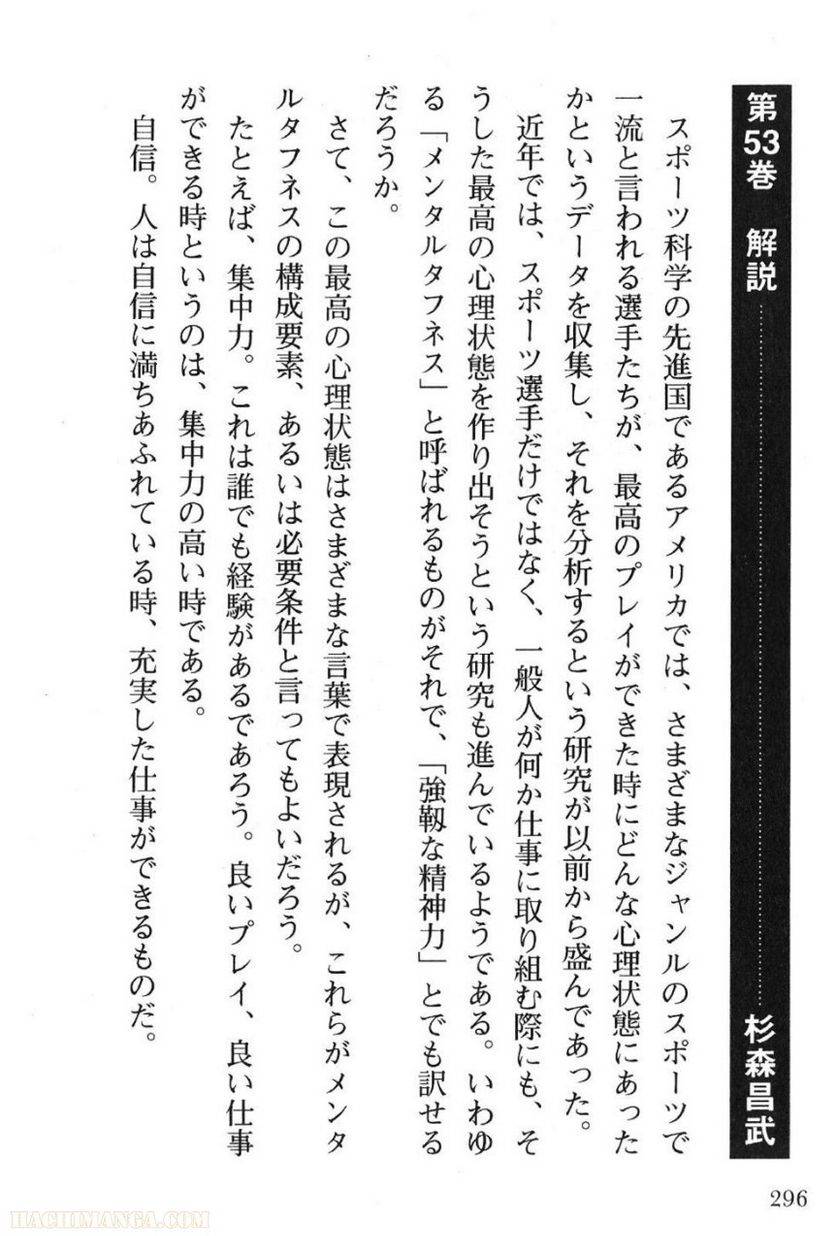 第53巻 解説……………………………杉森昌武
スポーツ科学の先進国であるアメリカでは、さまざまなジャンルのスポーツで
一流と言われる選手たちが、最高のプレイができた時にどんな心理状態にあった
かというデータを収集し、それを分析するという研究が以前から盛んであった。
近年では、スポーツ選手だけではなく、一般人が何か仕事に取り組む際にも、そ
うした最高の心理状態を作り出そうという研究も進んでいるようである。いわゆ
る「メンタルタフネス」と呼ばれるものがそれで、「強靱な精神力」とでも訳せる
だろうか。
さて、この最高の心理状態はさまざまな言葉で表現されるが、これらがメンタ
ルタフネスの構成要素、あるいは必要条件と言ってもよいだろう。
たとえば、集中力。これは誰でも経験があるであろう。良いプレイ、良い仕事
ができる時というのは、集中力の高い時である。
自信。人は自信に満ちあふれている時、充実した仕事ができるものだ。
296
HACHIMANGA.COM